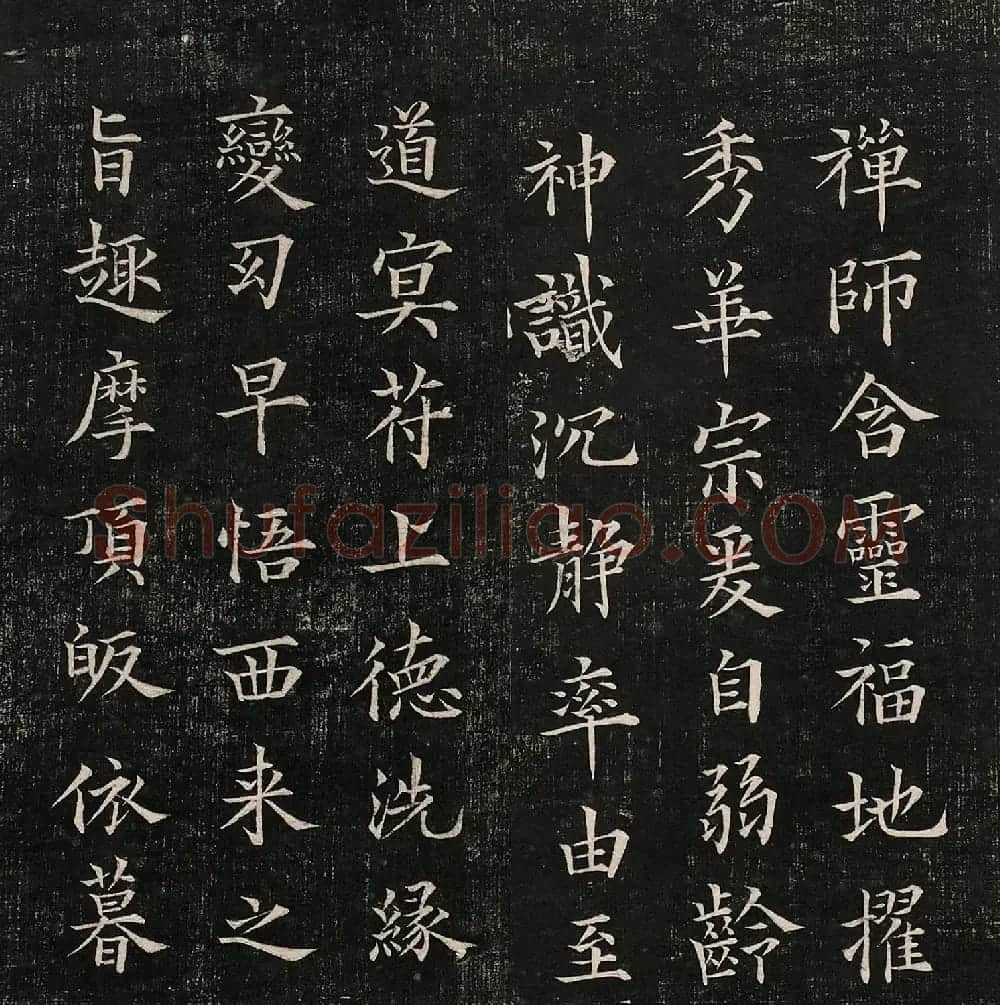 禪師含靈福地擢
秀華宗爰自弱齡
神識沉静率由至
道冥符上德洗緣
變幻早悟西来之
旨趣摩頂皈依暮
Shufaziliao.COM